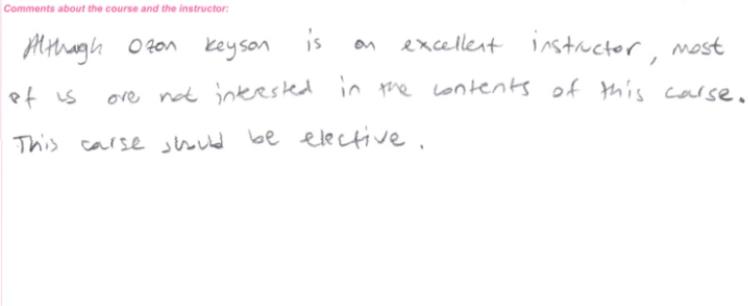 Comments about the course and the instructor:
Although Ozan Keysan is an excellent instructor, most
of us are not interested in the contents of this course.
This course should be elective.